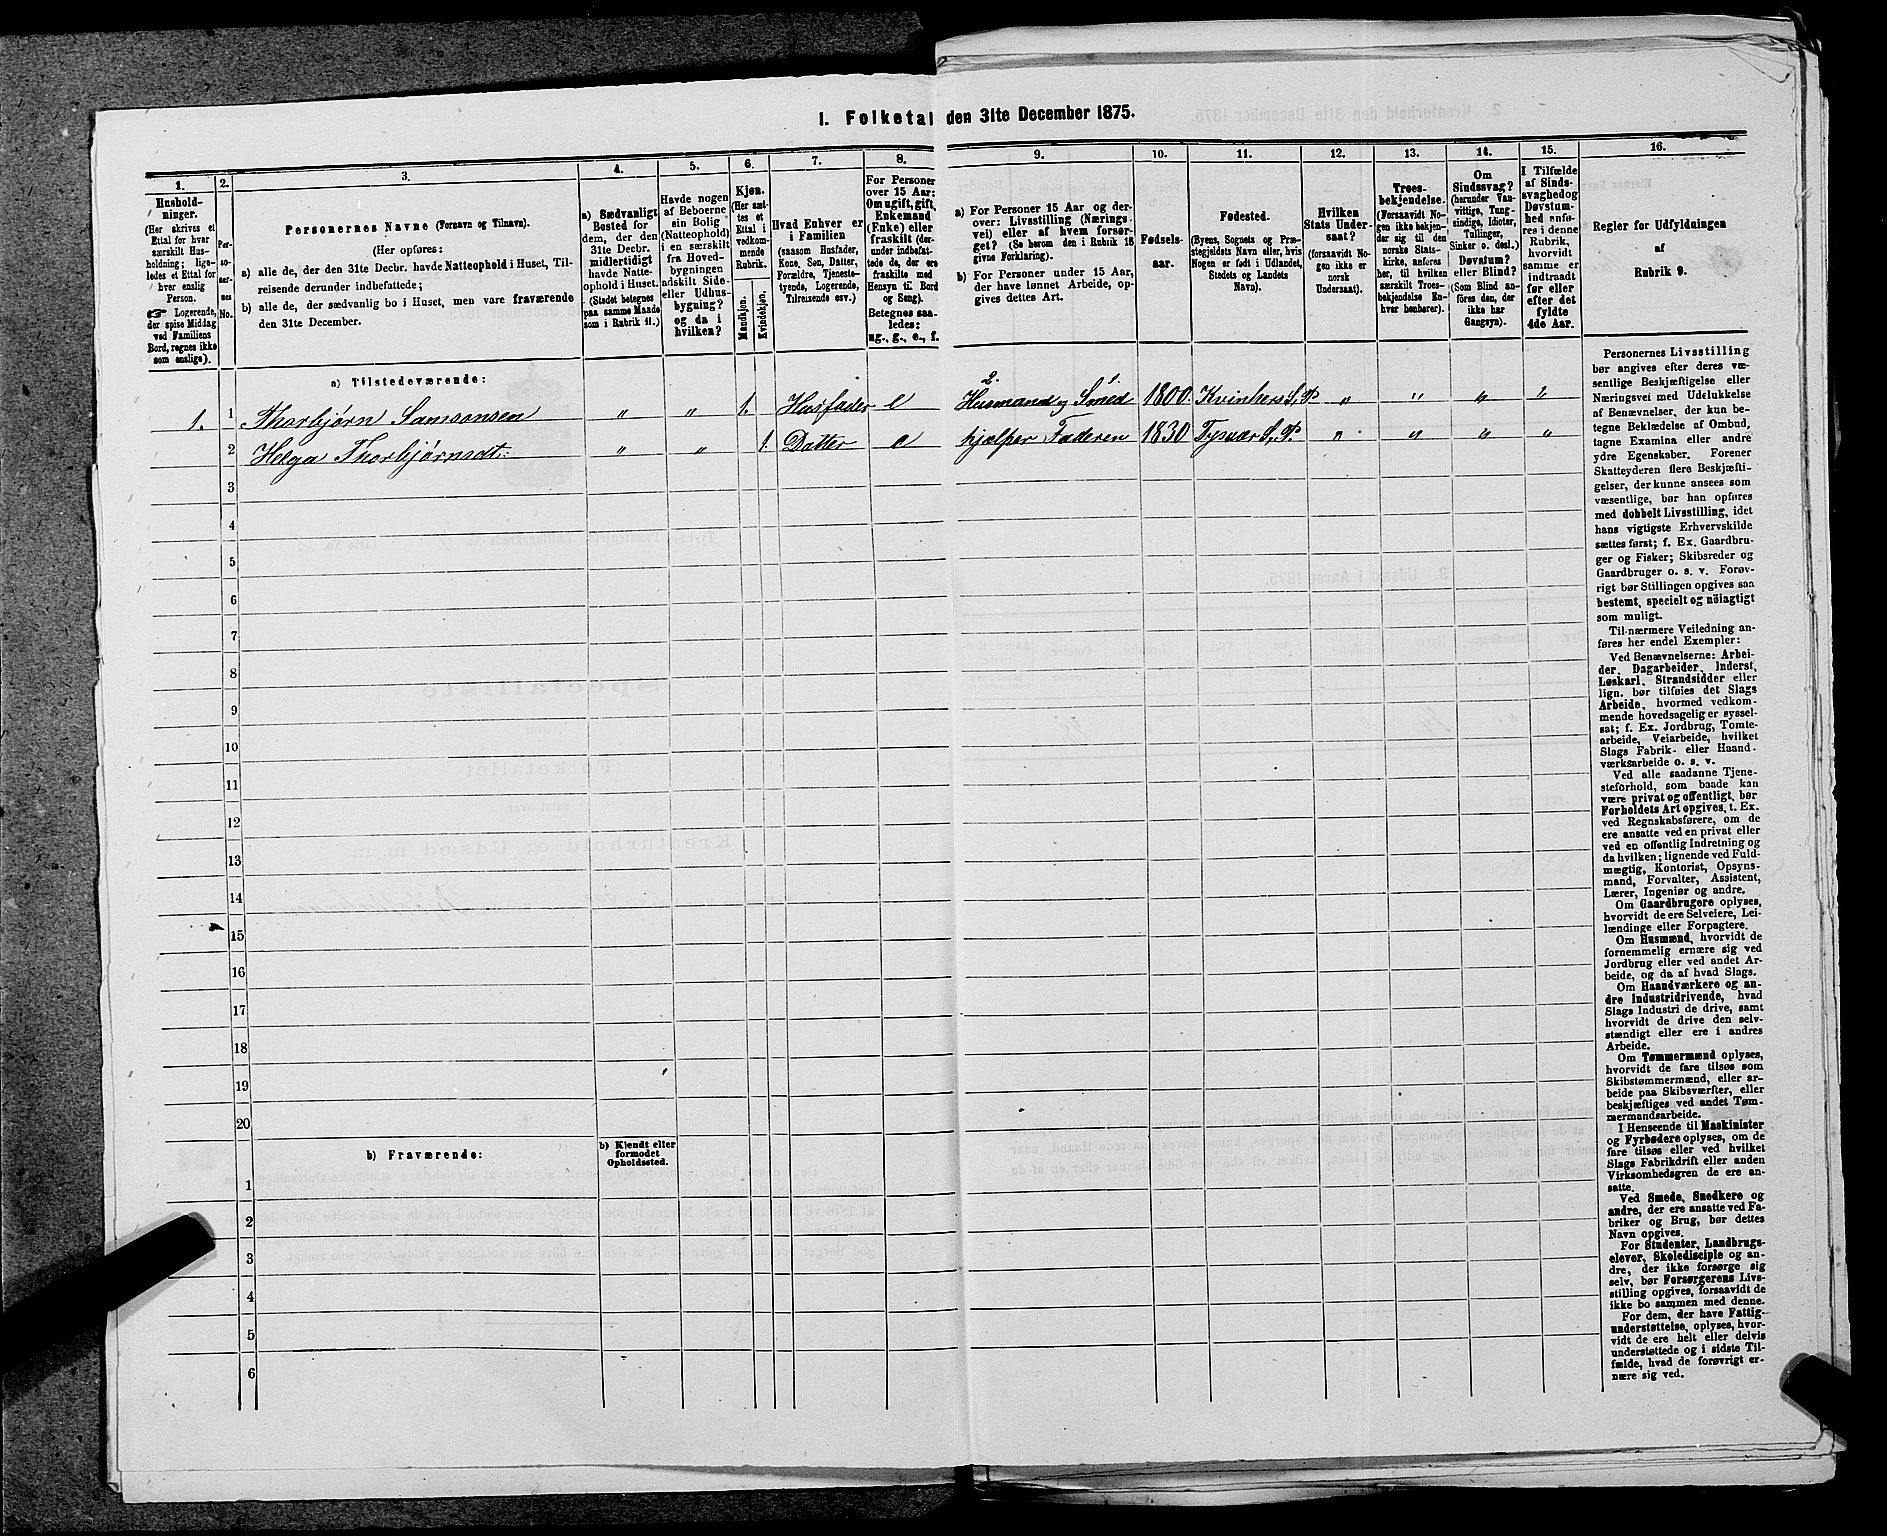 I. Folketal den 31te December 1875.
1. 2. 3. 4. 5. 6. 7. 8. 9. 10. 11. 12. 13. 14. 15. 16.
Husholdninger.
(Her skrives et
Ettal for hver
særskilt Husholdning; ligeledes et Ettal for
hver enslig
Person.
☞ Logerende,
der spise Middag
ved Familiens
Bord, regnes ikke
som enslige).
Personernes No.
Personernes Navne (Fornavn og Tilnavn).
(Her opføres:
a) alle de, der den 31te Decbr. havde Natteophold i Huset, Tilreisende derunder indbefattede;
b) alle de, der sædvanlig bo i Huset, men vare fraværende
den 31te December.
a) Sædvanligt
Bosted for
dem, der den
31te Decbr.
midlertidigt
havde Natteophold i Huset.
(Stedet betegnes
paa samme Maade
som i Rubrik 11.)
Havde nogen
af Beboerne
sin Bolig
(Natteophold)
i en særskilt
fra Hovedbygningen
adskilt Side-
eller Udhusbygning?
og da i
hvilken?
Kjøn.
(Her sættes et
Ettal i
vedkommende
Rubrik.
Mandkjøn.
Kvindekjøn.
Hvad Enhver er
i Familien
(saasom Husfader,
Kone, Søn, Datter,
Forældre, Tjenestetyende, Logerende,
Tilreisende osv.)
For Personer
over 15 Aar:
Om ugift, gift,
Enkemand
(Enke) eller
fraskilt (derunder indbefattede de, der ere
fraskilte med
Hensyn til Bord
og Seng).
Betegnes saaledes:
ug., g., e., f.
a) For Personer 15 Aar og derover: Livsstilling (Næringsvei) eller af hvem forsørget? (Se herom den i Rubrik 16
givne Forklaring).
b) For Personer under 15 Aar,
der have lønnet Arbeide, opgives dettes Art.
Fødselsaar.
Fødested.
(Byens, Sognets og Præstegjeldets Navn eller, hvis
Nogen er født i Udlandet,
Stedets og Landets
Navn).
Hvilken
Stats Undersaat?
(forsaavidt Nogen ikke er
norsk
Undersaat).
Troesbekjendelse.
(Forsaavidt Nogen ikke bekjender sig til den
norske Statskirke, anføres
her, til hvilken
særskilt Troesbekjendelse Enhver henhører).
Om
Sindssvag?
(herunder Vanvittige, Tungsindige, Idioter,
Tullinger,
Sinker o. desl.)
Døvstum?
eller Blind?
(Som Blind anføres den, der
ikke har
Gangsyn).
I Tilfælde
af Sindssvaghed og
Døvstumhed anføres i denne
Rubrik,
hvorvidt
samme er
indtraadt
før eller
efter det
fyldte
4de Aar.
Regler for Udfyldningen
af
Rubrik 9.
a) Tilstedeværende:
1. 1 Thorbjørn Samsonsen „ „ 1. Husfader e Husmand 2. og Smed 1. 1800 Kvinhers S. P. „ „ „ „
2 Helga Thorbjørnsdt: „ „ 1. Datter e hjælper Faderen 1830 Tysvær S. P. „ „ „ „
3
4
5
6
7
8
9
10
11
12
13
14
15
16
17
18
19
20
b) Fraværende:
b) Kjendt eller
formodet
Opholdssted.
1
2
3
4
5
6
Personernes Livsstilling
bør angives efter deres væsentlige Beskjæftigelse eller
Næringsvei med Udelukkelse
af Benævnelser, der kun betegne Beklædelse af Ombud,
tagne Examina eller andre
ydre Egenskaber. Forener
Skatteyderen flere Beskjæftigelser, der kunne ansees som
væsentlige, bør han opføres
med dobbelt Livsstilling, idet
hans vigtigste Erhvervskilde
sættes først; f. Ex. Gaardbruger og Fisker; Skibsreder og
Gaardbruger o. s. v. Forøvrigt bør Stillingen opgives saa
bestemt, specielt og nöiagtigt
som muligt.
Til nærmere Veiledning anføres her endel Exempler:
Ved Benævnelserne: Arbeider, Dagarbeider, Inderst,
Løskarl, Strandsidder eller
lign. bør tilføies det Slags
Arbeide, hvormed vedkommende hovedsagelig er sysselsat; f. Ex. Jordbrug, Tomtearbeide, Veiarbeide, hvilket
Slags Fabrik- eller Haandværksarbeide o. s. v.
Ved alle saadanne Tjenesteforhold, som baade kan
være privat og offentligt, bør
Forholdets Art opgives, t. Ex.
ved Regnskabsførere, om de
ere ansatte ved en privat eller
ved en offentlig Indretning og
da hvilken; lignende ved Fuldmægtig, Kontorist, Opsynsmand, Forvalter, Assistent,
Lærer, Ingeniør og andre.
Om Gaardbrugere oplyses,
hvorvidt de ere Selveiere, Leilændinge eller Forpagtere.
Om Husmænd, hvorvidt de
fornemmelig ernære sig ved
Jordbrug eller ved andet Arbeide, og da af hvad Slags.
Om Haandværkere og andre Industridrivende, hvad
Slags Industri de drive, samt
hvorvidt de drive den selvstændigt eller ere i andres
Arbeide.
Om Tømmermænd oplyses,
hvorvidt de fare tilsøs som
Skibstømmermænd, eller arbeide paa Skibsværfter, eller
beskjæftiges ved andet Tømmermandsarbeide.
I Henseende til Maskinister
og Fyrbødere oplyses, om de
fare tilsøs eller ved hvilket
Slags Fabrikdrift eller anden
Virksomhedsgren de ere ansatte.
Ved Smede, Snedkere og
andre, der ere ansatte ved Fabriker og Brug, bør dettes
Navn opgives.
For Studenter, Landbrugselever, Skoledisciple og andre, der ikke forsørge sig
selv, bør Forsørgerens Livsstilling opgives, forsaavidt de
ikke bo sammen med denne.
For dem, der have Fattigunderstøttelse, oplyses, hvorvidt de ere helt eller delvis
understøttede og i sidste Tilfælde, hvad de forøvrigt ernære sig ved.